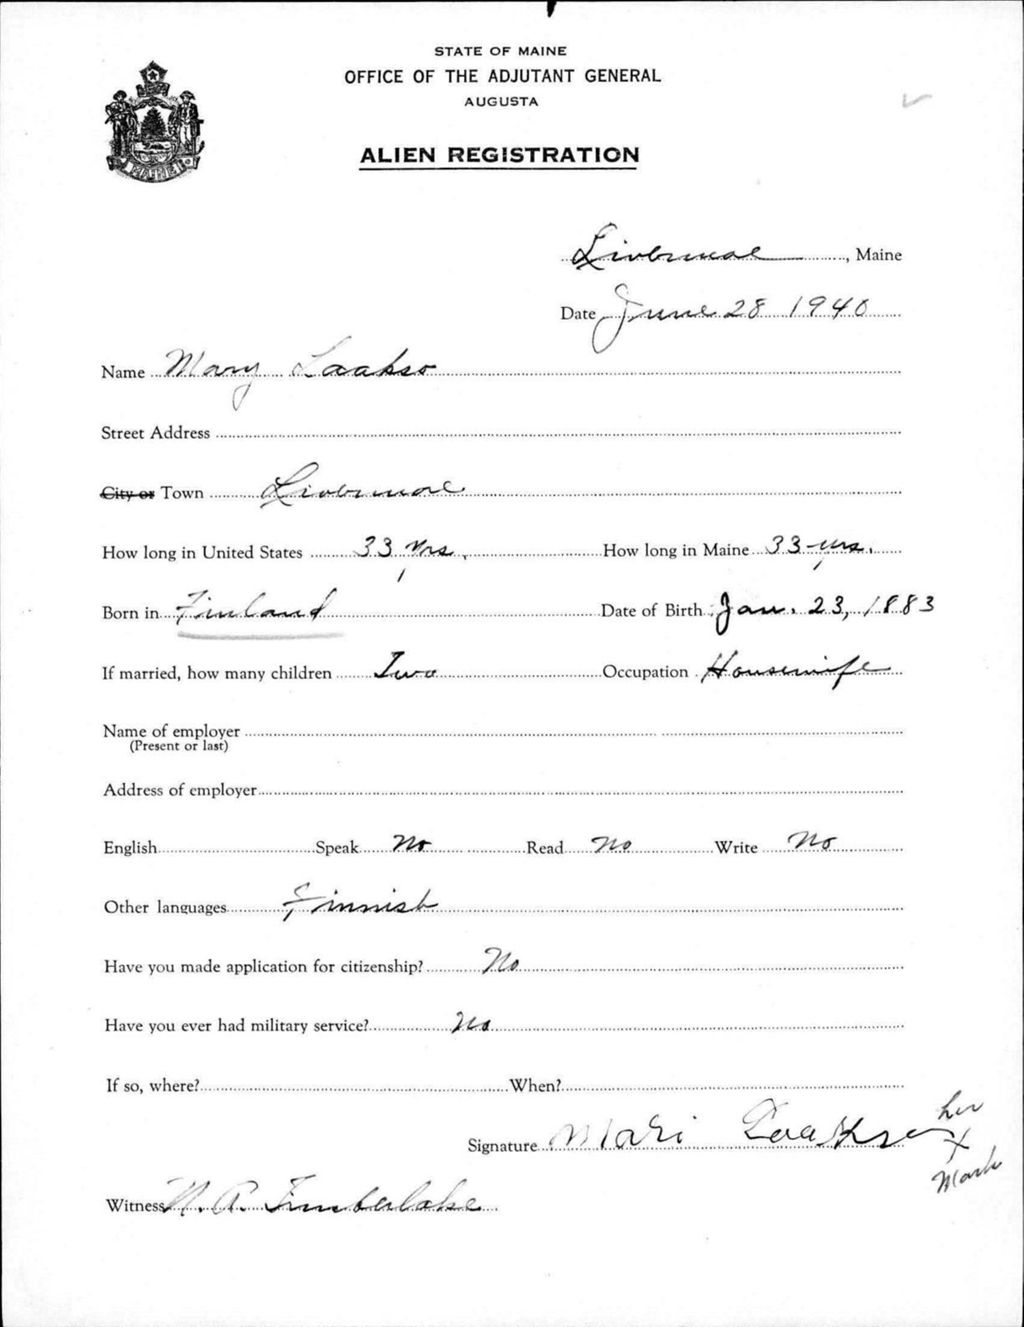 STATE OF MAINE
OFFICE OF THE ADJUTANT GENERAL
AUGUSTA
ALIEN REGISTRATION
MAINE
Livermore, Maine
Date June 28 1940
Name Mary Laakso
Street Address
City or Town Livermore
How long in United States 33 yrs. How long in Maine 33 yrs.
Born in Finland Date of Birth Jan. 23, 1883
If married, how many children Two Occupation Housewife
Name of employer
(Present or last)
Address of employer
English Speak No Read No Write No
Other languages Finnish
Have you made application for citizenship? No
Have you ever had military service? No
If so, where? When?
Signature Mari Laakso her
X
Mark
Witness Timberlake